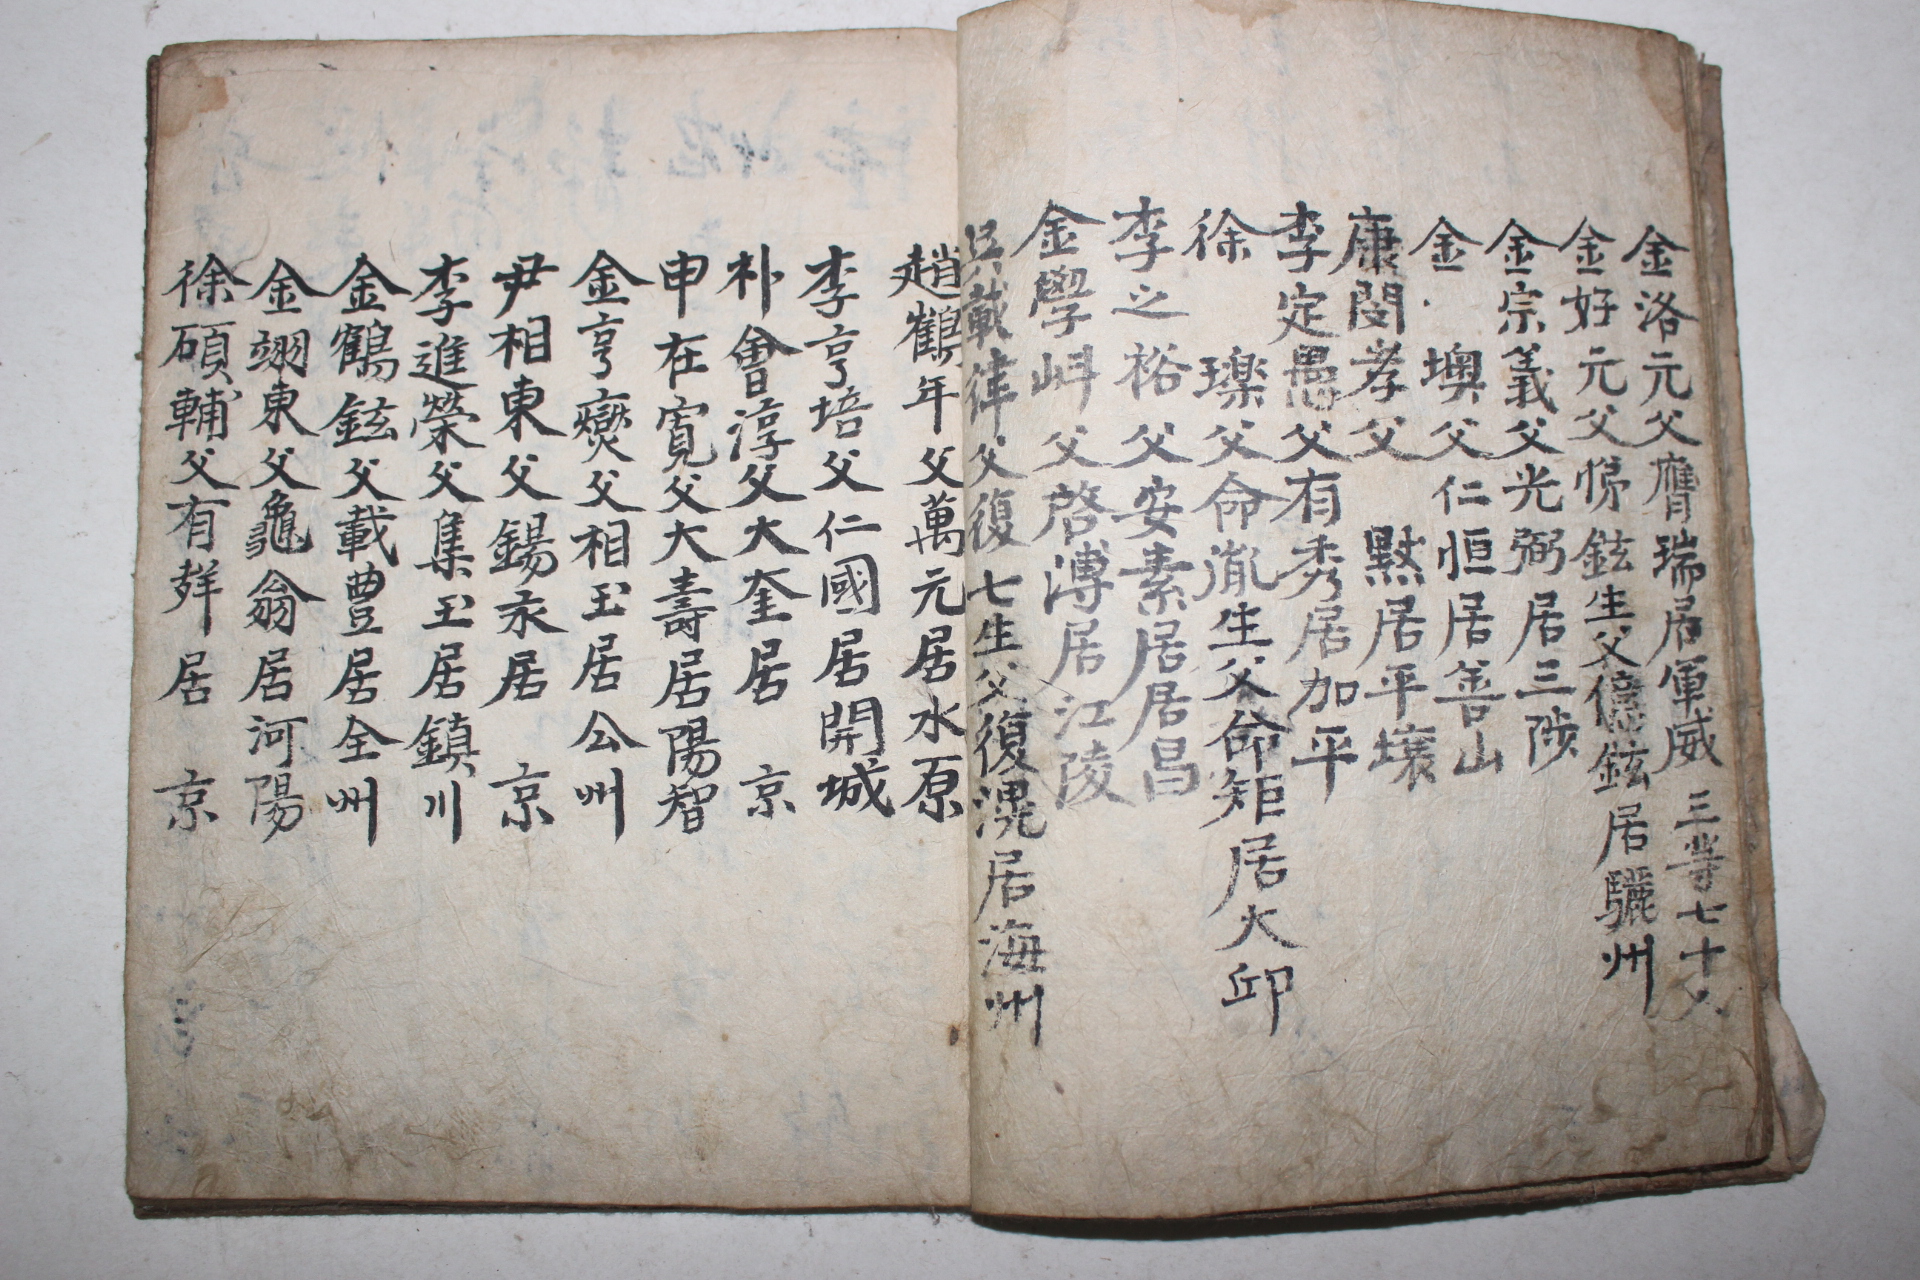 金洛元父膺瑞居軍威 三等七十人
金好元父悌鉉生父億鉉居驪州
金宗義父光弼居三陟
金 墺父仁恒居善山
康閔孝父 黙居平壤
李定愚父有秀居加平
徐 璨父命胤生父命矩居大邱
李之裕父安素居居昌
金學 父啓溥居江陵
吳載律父復七生父復滉居海州
趙鶴年父萬元居水原
李亨培父仁國居開城
朴會淳父大奎居 京
申在寬父大壽居陽智
金亨燮父相玉居公州
尹相東父錫永居 京
李進榮父集玉居鎮川
金鶴鉉父載豊居全州
金翊東父龜翁居河陽
徐碩輔父有 居 京